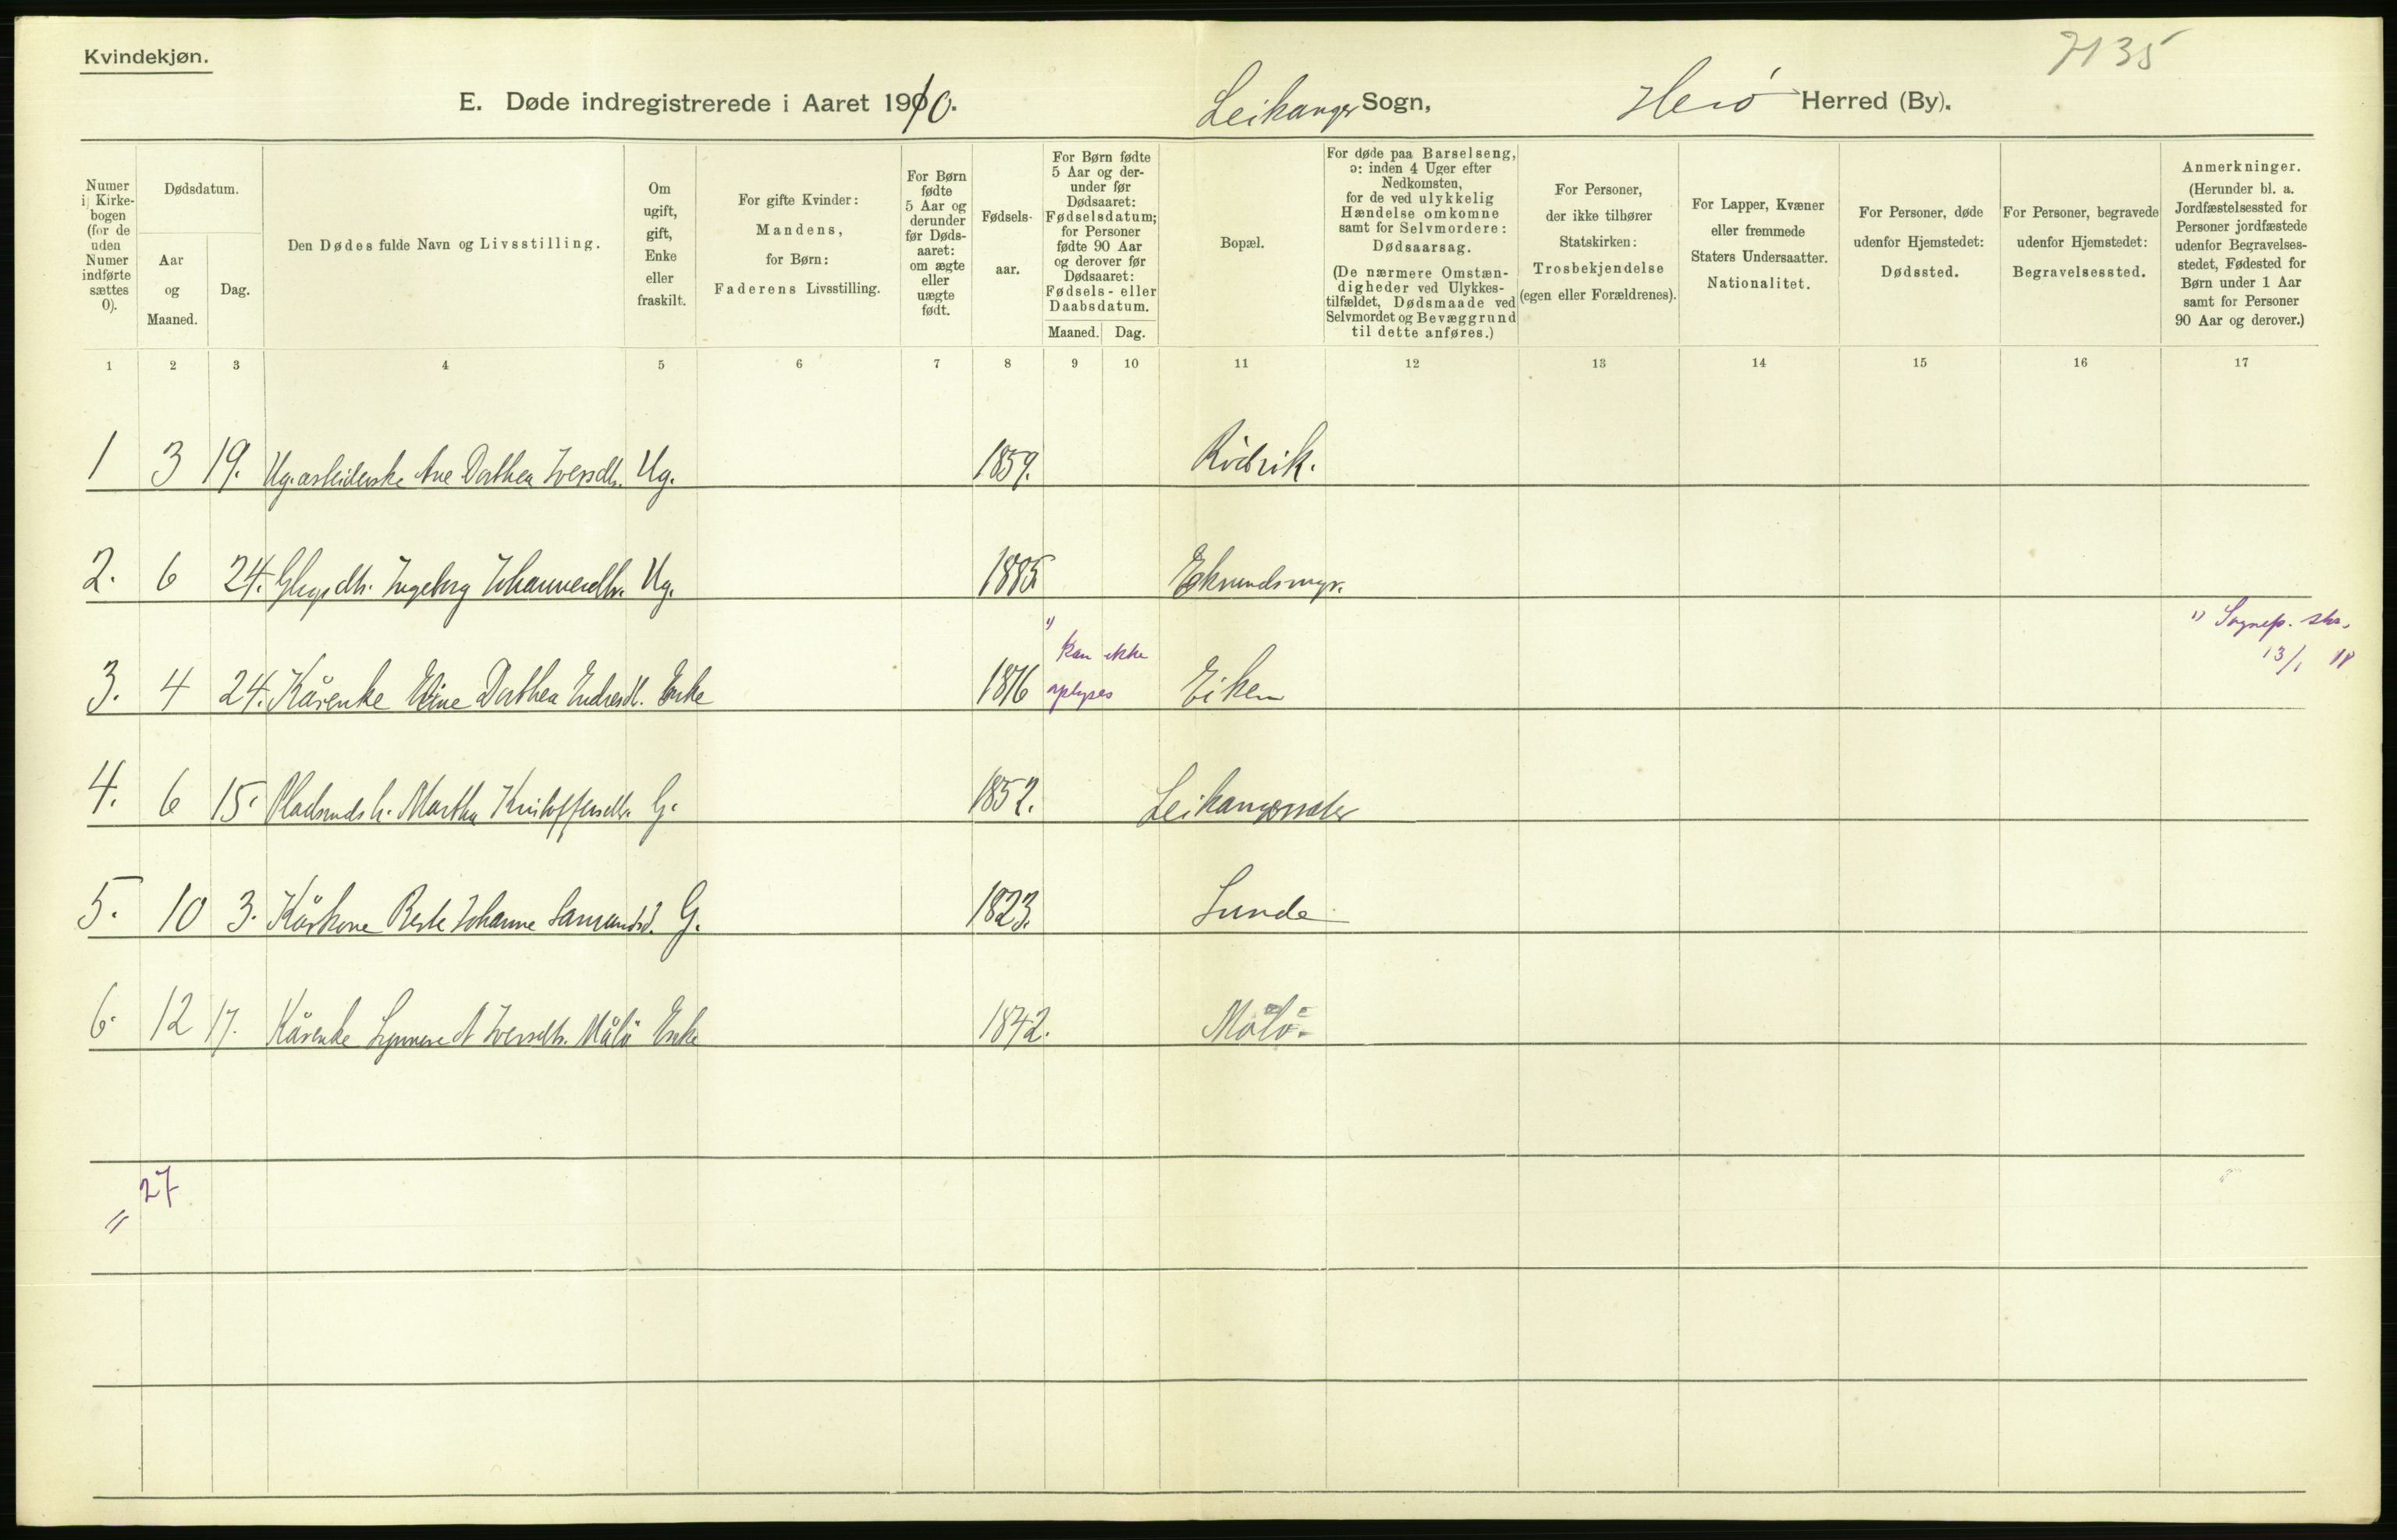 Kvindekjøn.
7135
E. Døde indregistrerede i Aaret 1910.
Leikanger Sogn,
Herø Herred (By).
Numer i Kirke-bogen (for de uden Numer indførte sættes 0).
Dødsdatum.
Aar og Maaned.
Dag.
Den Dødes fulde Navn og Livsstilling.
Om ugift, gift, Enke eller fraskilt.
For gifte Kvinder: Mandens, for Børn: Faderens Livsstilling.
For Børn fødte 5 Aar og derunder før Døds-aaret: om ægte eller uægte født.
Fødsels-aar.
For Børn fødte 5 Aar og der-under før Dødsaaret: Fødselsdatum; for Personer fødte 90 Aar og derover før Dødsaaret: Fødsels- eller Daabsdatum.
Maaned. Dag.
Bopæl.
For døde paa Barselseng, ɔ: inden 4 Uger efter Nedkomsten, for de ved ulykkelig Hændelse omkomne samt for Selvmordere: Dødsaarsag.
(De nærmere Omstæn-digheder ved Ulykkes-tilfældet, Dødsmaade ved Selvmordet og Bevæggrund til dette anføres.)
For Personer, der ikke tilhører Statskirken: Trosbekjendelse (egen eller Forældrenes).
For Lapper, Kvæner eller fremmede Staters Undersaatter. Nationalitet.
For Personer, døde udenfor Hjemstedet: Dødssted.
For Personer, begravede udenfor Hjemstedet: Begravelsessted.
Anmerkninger.
(Herunder bl. a. Jordfæstelsessted for Personer jordfæstede udenfor Begravelses-stedet, Fødested for Børn under 1 Aar samt for Personer 90 Aar og derover.)
1 2 3 4 5 6 7 8 9 10 11 12 13 14 15 16 17
1 3 19. Ug. arbeiderske Ane Dorthea Iversdtr. Ug. 1859. Kvidvik.
2. 6 24. Ingeborg Johannesdtr. Ug. 1885.
3. 4 24. Kårenke Eline Dorthea Endresdt. Enke 1816 1) kan ikke oplyses Eiken 1) Sognep. skr. 13/1
4. 6 15. Pladsmds h. Martha Kristoffersdtr. G. 1852. Leikangersæter
5. 10 3. Kårkone Johanne G. 1823. Lunde
6. 12 17. Kårenke Iversdtr. Målö Enke 1842. Målö.
" 27